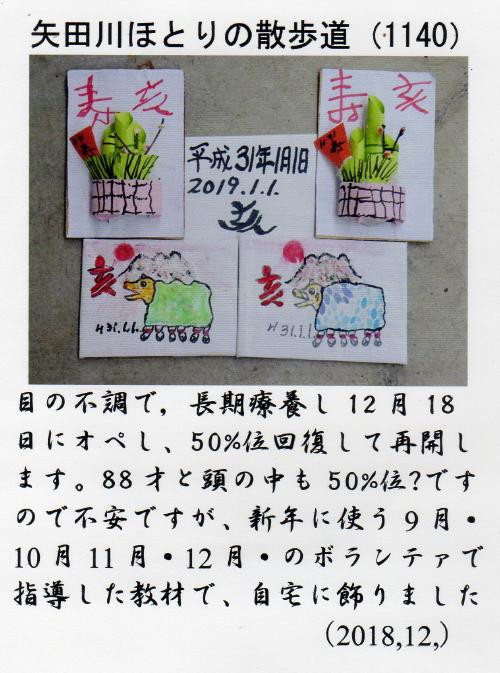 矢田川ほとりの散歩道（1140）
寿 亥
寿 亥
平成31年1月1日
2019.1.1.
亥
H31.1.1.
亥
H31.1.1.
目の不調で，長期療養し12月18
日にオペし、50%位回復して再開し
ます。88才と頭の中も50%位?です
ので不安ですが、新年に使う9月・
10月11月・12月・のボランテァで
指導した教材で、自宅に飾りました
（2018,12,）